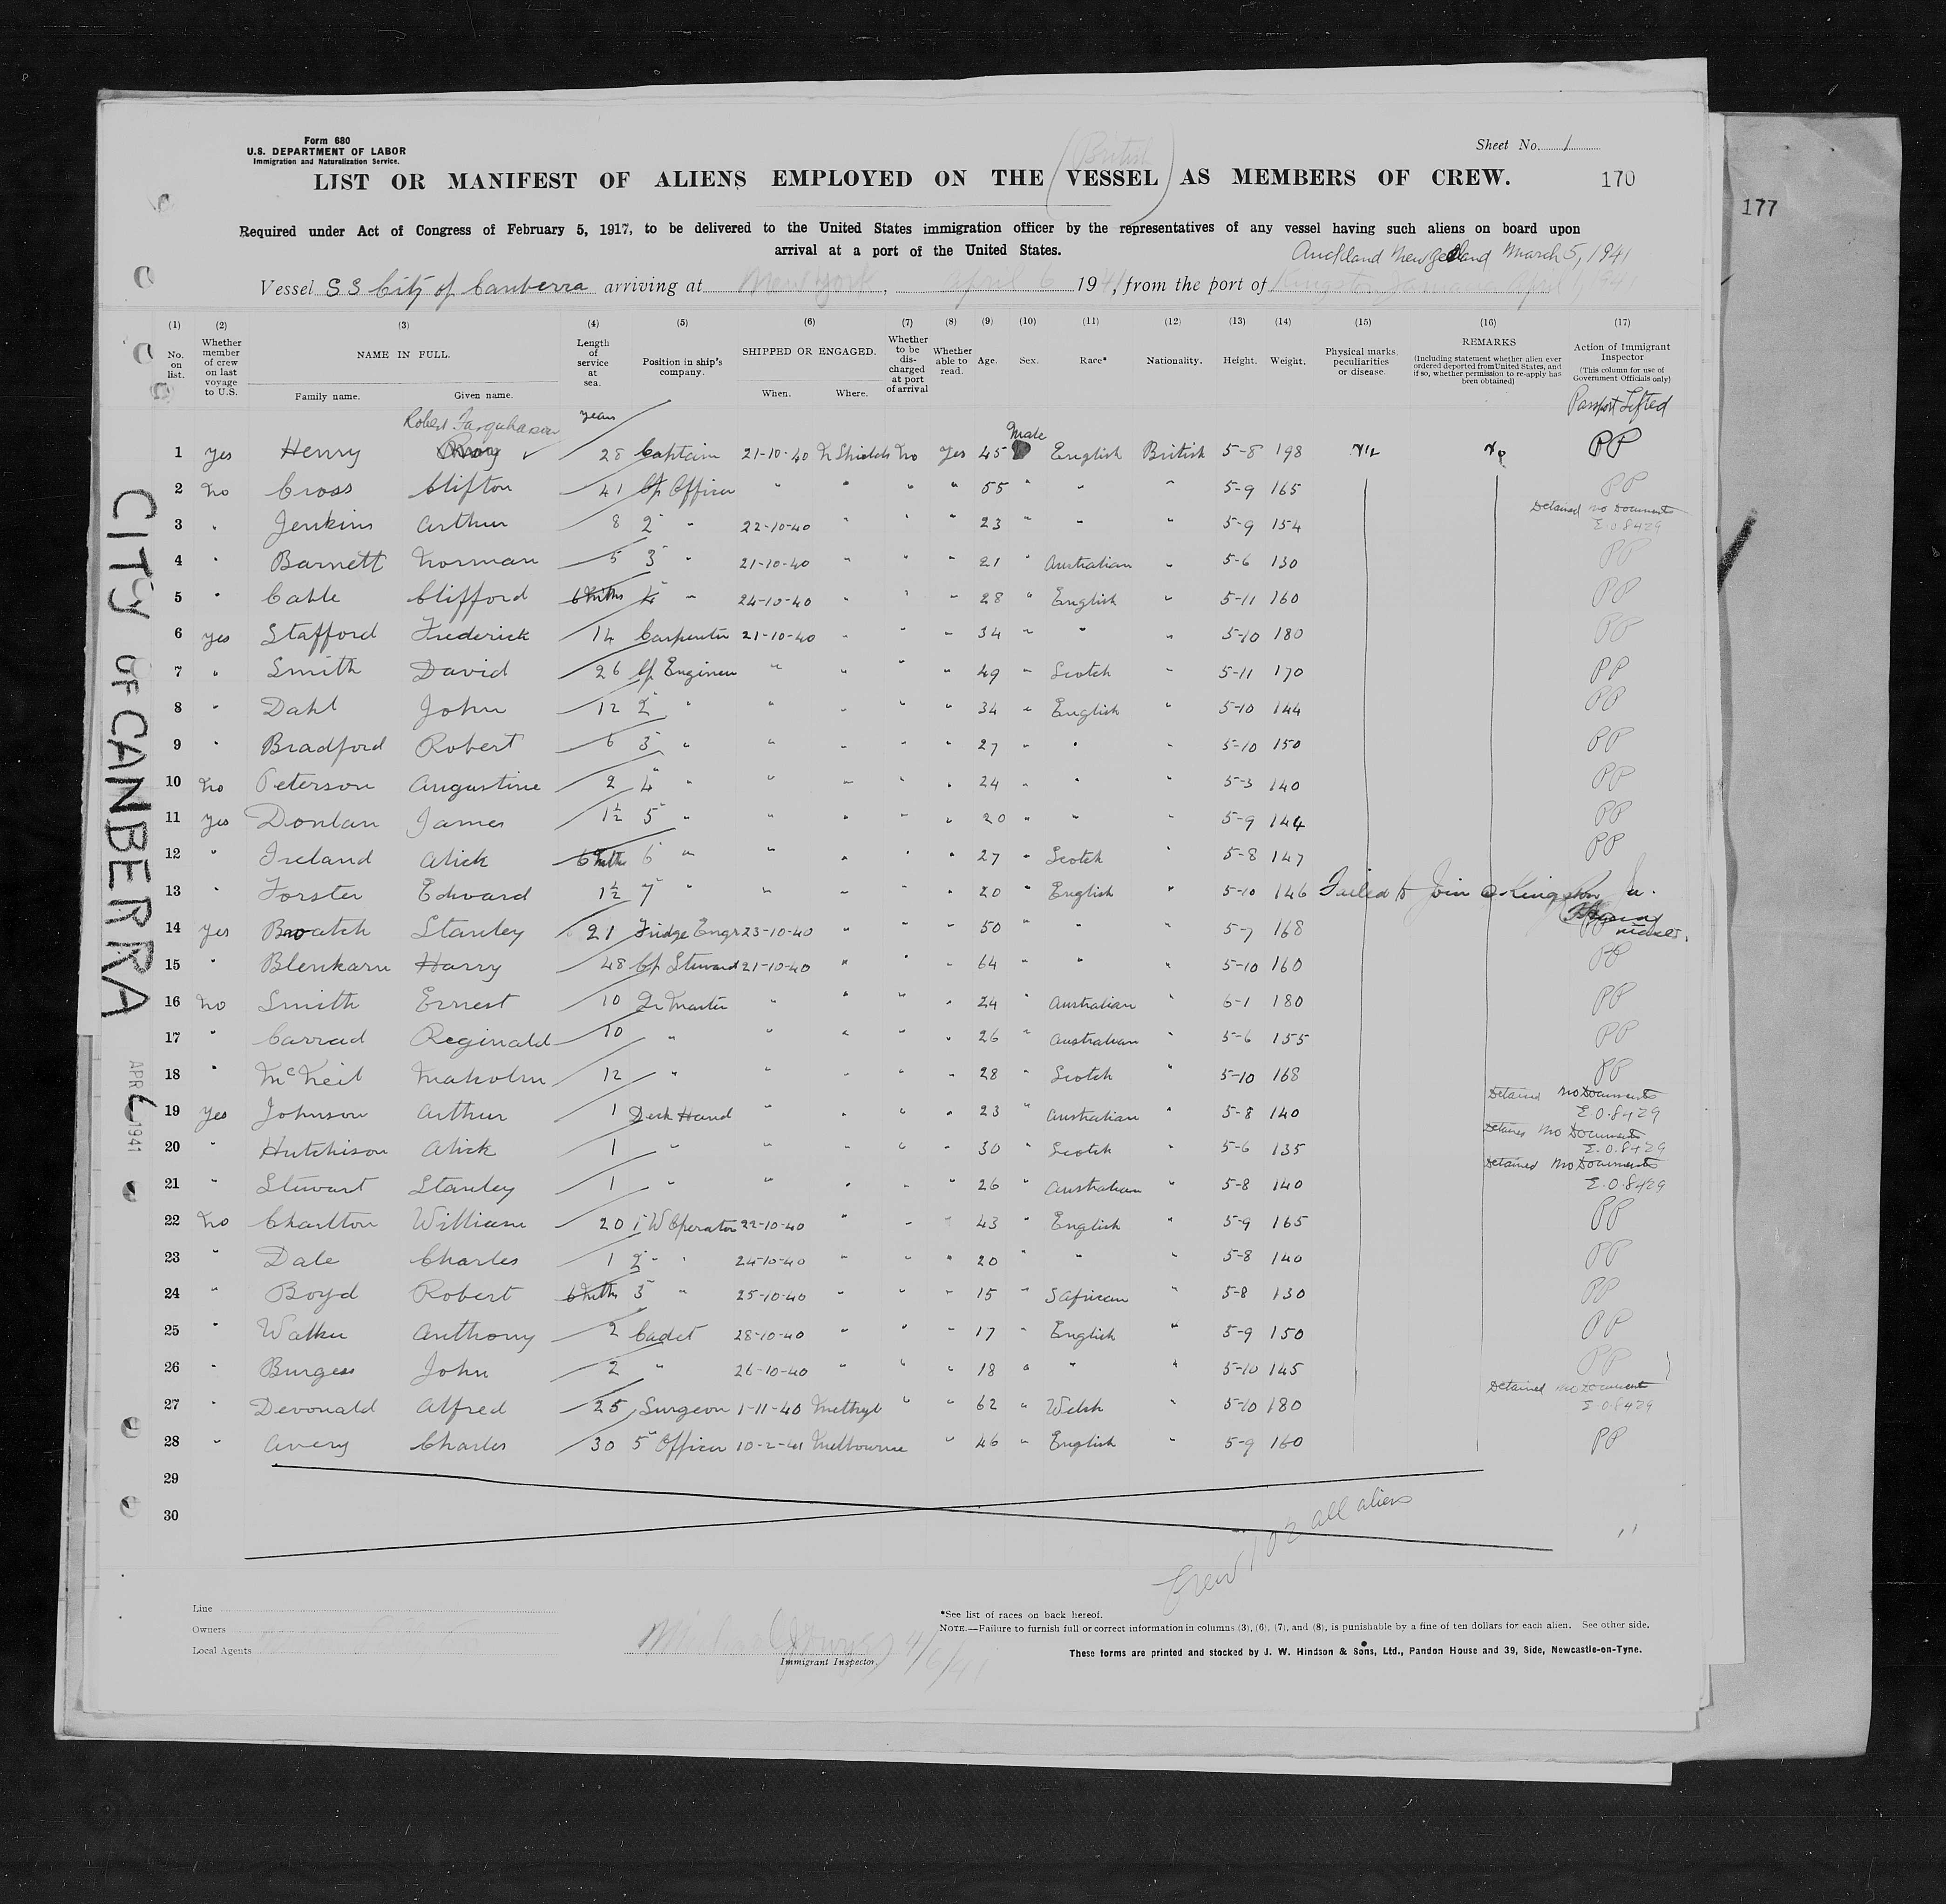 Form 680
U.S. DEPARTMENT OF LABOR
Immigration and Naturalization Service.
Sheet No. 1
(British)
LIST OR MANIFEST OF ALIENS EMPLOYED ON THE VESSEL AS MEMBERS OF CREW.
170
177
Required under Act of Congress of February 5, 1917, to be delivered to the United States immigration officer by the representatives of any vessel having such aliens on board upon
arrival at a port of the United States.
Auckland New Zealand March 5, 1941
Vessel SS City of Canberra arriving at New York, April 6 1941, from the port of Kingston Jamaica April 1, 1941
(1) (2) (3) (4) (5) (6) (7) (8) (9) (10) (11) (12) (13) (14) (15) (16) (17)
No. on list.
Whether member of crew on last voyage to U.S.
NAME IN FULL.
Family name.
Given name.
Length of service at sea.
Position in ship's company.
SHIPPED OR ENGAGED.
When.
Where.
Whether to be discharged at port of arrival
Whether able to read.
Age.
Sex.
Race*
Nationality.
Height.
Weight.
Physical marks, peculiarities or disease.
REMARKS
(Including statement whether alien ever ordered deported from United States, and if so, whether permission to re-apply has been obtained)
Action of Immigrant Inspector
(This column for use of Government Officials only)
Passport Lifted
Robert Farquharson
years
Male
1 yes Henry Roy 28 Captain 21-10-40 N Shields No Yes 45 English British 5-8 198 Nil No PP
2 No Cross Clifton 41 Cf Officer " " " " 55 " " " 5-9 165 PP
3 " Jenkins Arthur 8 2 " 22-10-40 " " " 23 " " " 5-9 154 Detained No Documents E.O.8429
4 " Barnett Norman 5 3 " 21-10-40 " " " 21 " Australian " 5-6 130 PP
5 " Cable Clifford 6 mths 4 " 24-10-40 " " " 28 " English " 5-11 160 PP
6 yes Stafford Frederick 14 Carpenter 21-10-40 " " " 34 " " " 5-10 180 PP
7 " Smith David 26 Cf Engineer " " " " 49 " Scotch " 5-11 170 PP
8 " Dahl John 12 2 " " " " " 34 " English " 5-10 144 PP
9 " Bradford Robert 6 3 " " " " " 27 " " " 5-10 150 PP
10 No Peterson Augustine 2 4 " " " " " 24 " " " 5-3 140 PP
11 yes Donlan James 1½ 5 " " " " " 20 " " " 5-9 144 PP
12 " Ireland Alick 6 mths 6 " " " " " 27 " Scotch " 5-8 147 PP
13 " Forster Edward 1½ 7 " " " " " 20 " English " 5-10 146 Failed to Join @ Kingston Ja.
14 yes Boatch Stanley 21 Fridge Engr 23-10-40 " " " 50 " " " 5-7 168 PP
15 " Blenkarn Harry 48 Cf Steward 21-10-40 " " " 64 " " " 5-10 160 PP
16 No Smith Ernest 10 Qr Master " " " " 24 " Australian " 6-1 180 PP
17 " Carrad Reginald 10 " " " " " 26 " Australian " 5-6 155 PP
18 " McNeil Malcolm 12 " " " " " 28 " Scotch " 5-10 168 PP
19 yes Johnson Arthur 1 Deck Hand " " " " 23 " Australian " 5-8 140 Detained No Documents E.O.8429
20 " Hutchison Alick 1 " " " " " 30 " Scotch " 5-6 135 Detained No Documents E.O.8429
21 " Stewart Stanley 1 " " " " " 26 " Australian " 5-8 140 Detained No Documents E.O.8429
22 No Charlton William 20 1 W Operator 22-10-40 " " " 43 " English " 5-9 165 PP
23 " Dale Charles 1 2 " " 24-10-40 " " " 20 " " " 5-8 140 PP
24 " Boyd Robert 6 mths 3 " 25-10-40 " " " 15 " S African " 5-8 130 PP
25 " Walker Anthony 2 Cadet 28-10-40 " " " 17 " English " 5-9 150 PP
26 " Burgess John 2 " 26-10-40 " " " 18 " " " 5-10 145 PP
27 " Devonald Alfred 25 Surgeon 1-11-40 Methyl " " 62 " Welsh " 5-10 180 Detained No Document E.O.8429
28 " Avery Charles 30 5 Officer 10-2-41 Melbourne " 46 " English " 5-9 160 PP
29
30
Crew 102 all aliens
CITY OF CANBERRA
APR 6 1941
Line
Owners
Local Agents
4/6/41
Immigrant Inspector.
*See list of races on back hereof.
NOTE.—Failure to furnish full or correct information in columns (3), (6), (7), and (8), is punishable by a fine of ten dollars for each alien. See other side.
These forms are printed and stocked by J. W. Hindson & Sons, Ltd., Pandon House and 39, Side, Newcastle-on-Tyne.